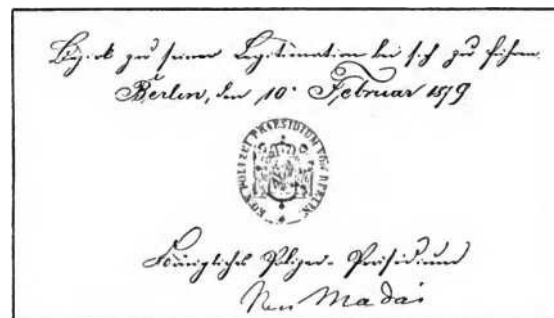 zu seiner Legitimation bei sich zu führen.
Berlin, den 10. Februar 1879
KÖN. POLIZEI PRAESIDIUM VON BERLIN
Königliches Polizei-Präsidium
von Madai